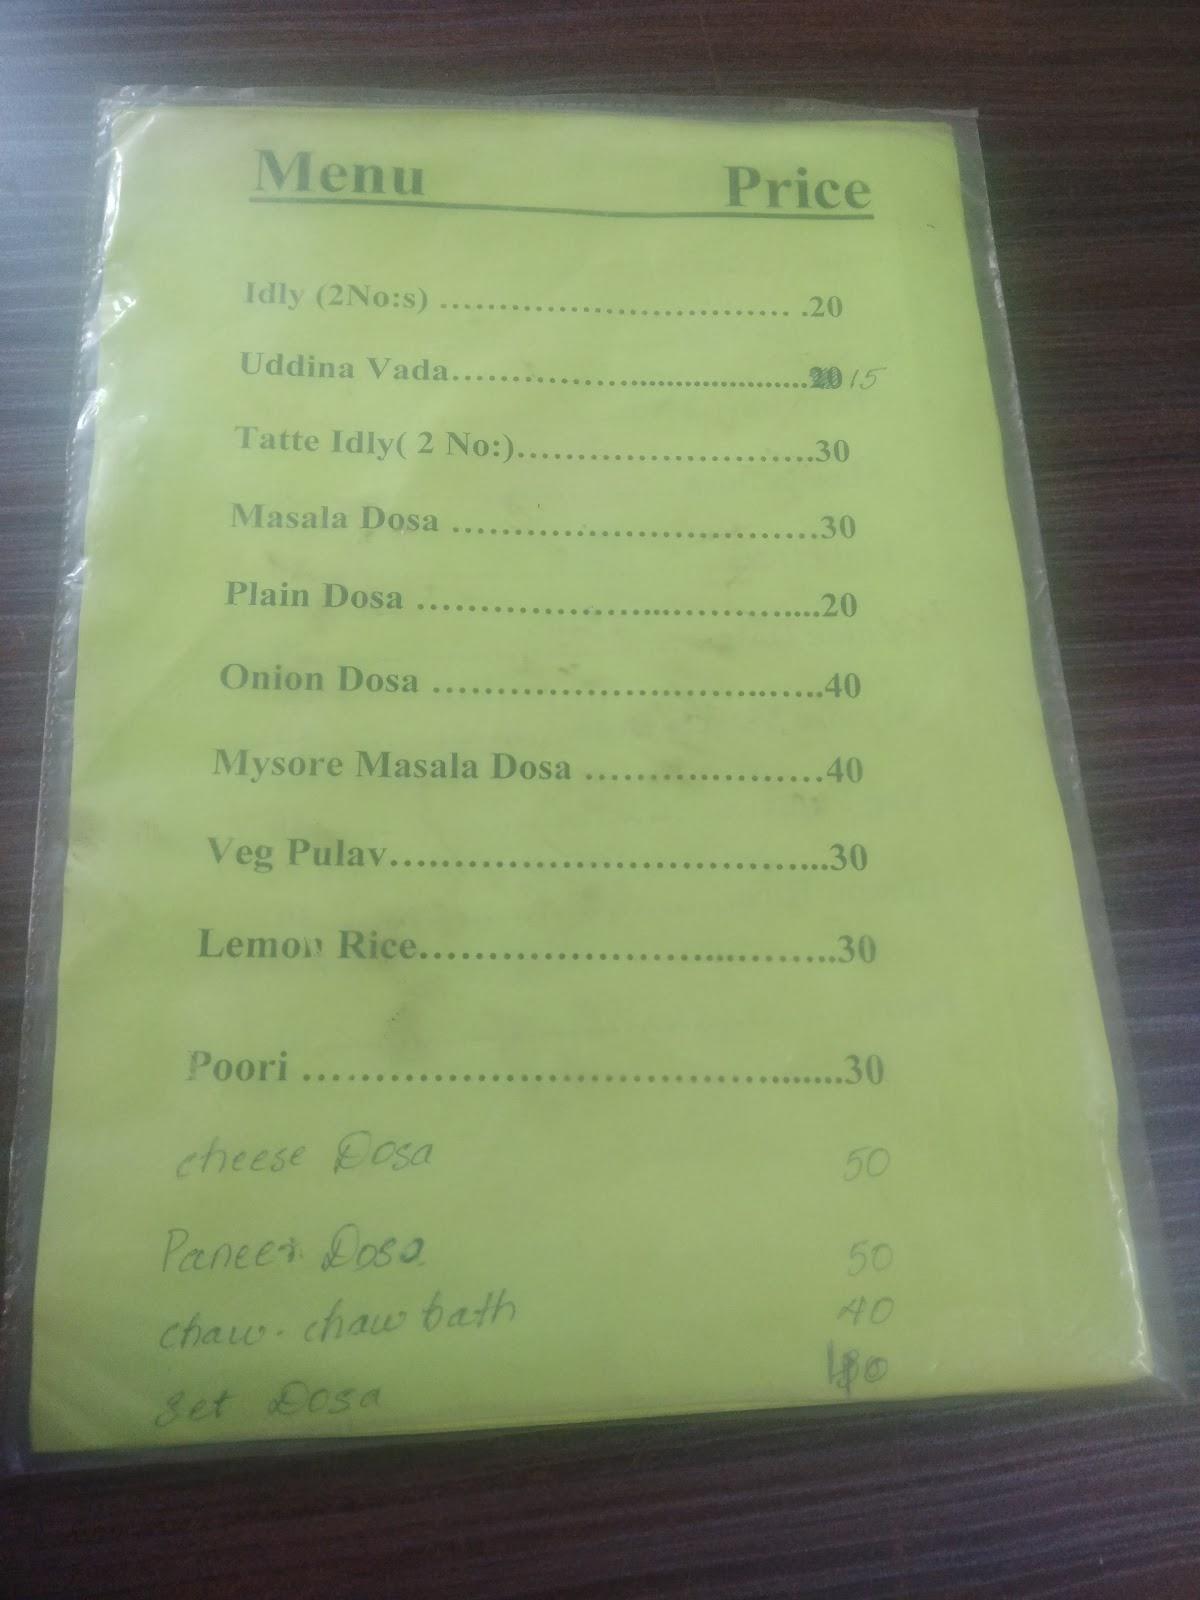 Menu Price
Idly (2No:s) ................................ .20
Uddina Vada.....................................20 15
Tatte Idly( 2 No:)............................30
Masala Dosa ..................................30
Plain Dosa .....................................20
Onion Dosa ....................................40
Mysore Masala Dosa ......................40
Veg Pulav........................................30
Lemon Rice.....................................30
Poori ..............................................30
cheese Dosa 50
Paneer Dosa 50
chaw. chaw bath 40
set Dosa